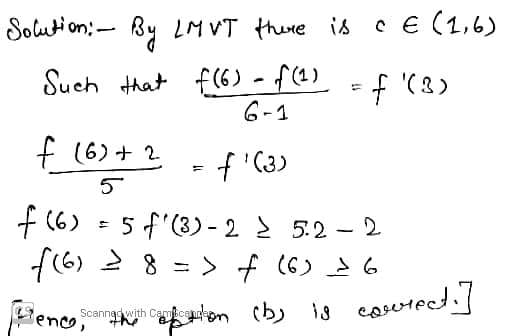 Solution:- By LMVT there is c ∈ (1,6)
Such that f(6) - f(1) / 6-1 = f'(3)
f(6) + 2 / 5 = f'(3)
f(6) = 5 f'(3) - 2 ≥ 5.2 - 2
f(6) ≥ 8 => f(6) ≥ 6
Hence, the option (b) is correct.]
Scanned with CamScanner